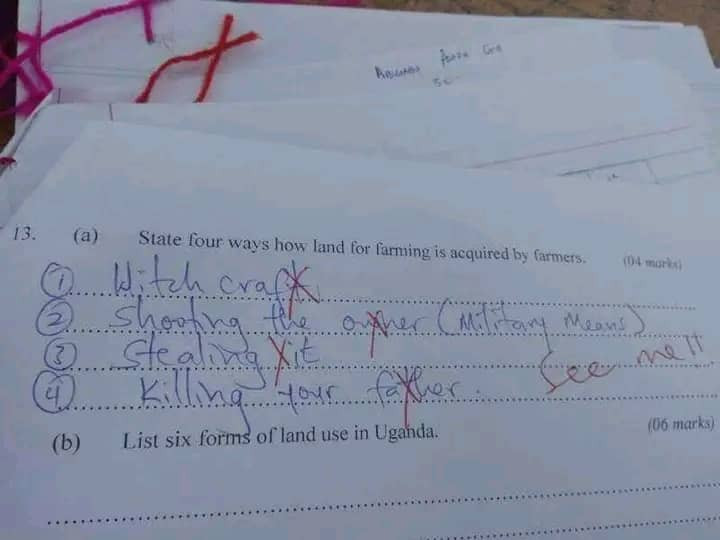 13. (a) State four ways how land for farming is acquired by farmers. (04 marks)
① Witch craft
② Shooting the owner (Military Means)
③ Stealing it
See me!!
④ Killing your father.
(b) List six forms of land use in Uganda. (06 marks)